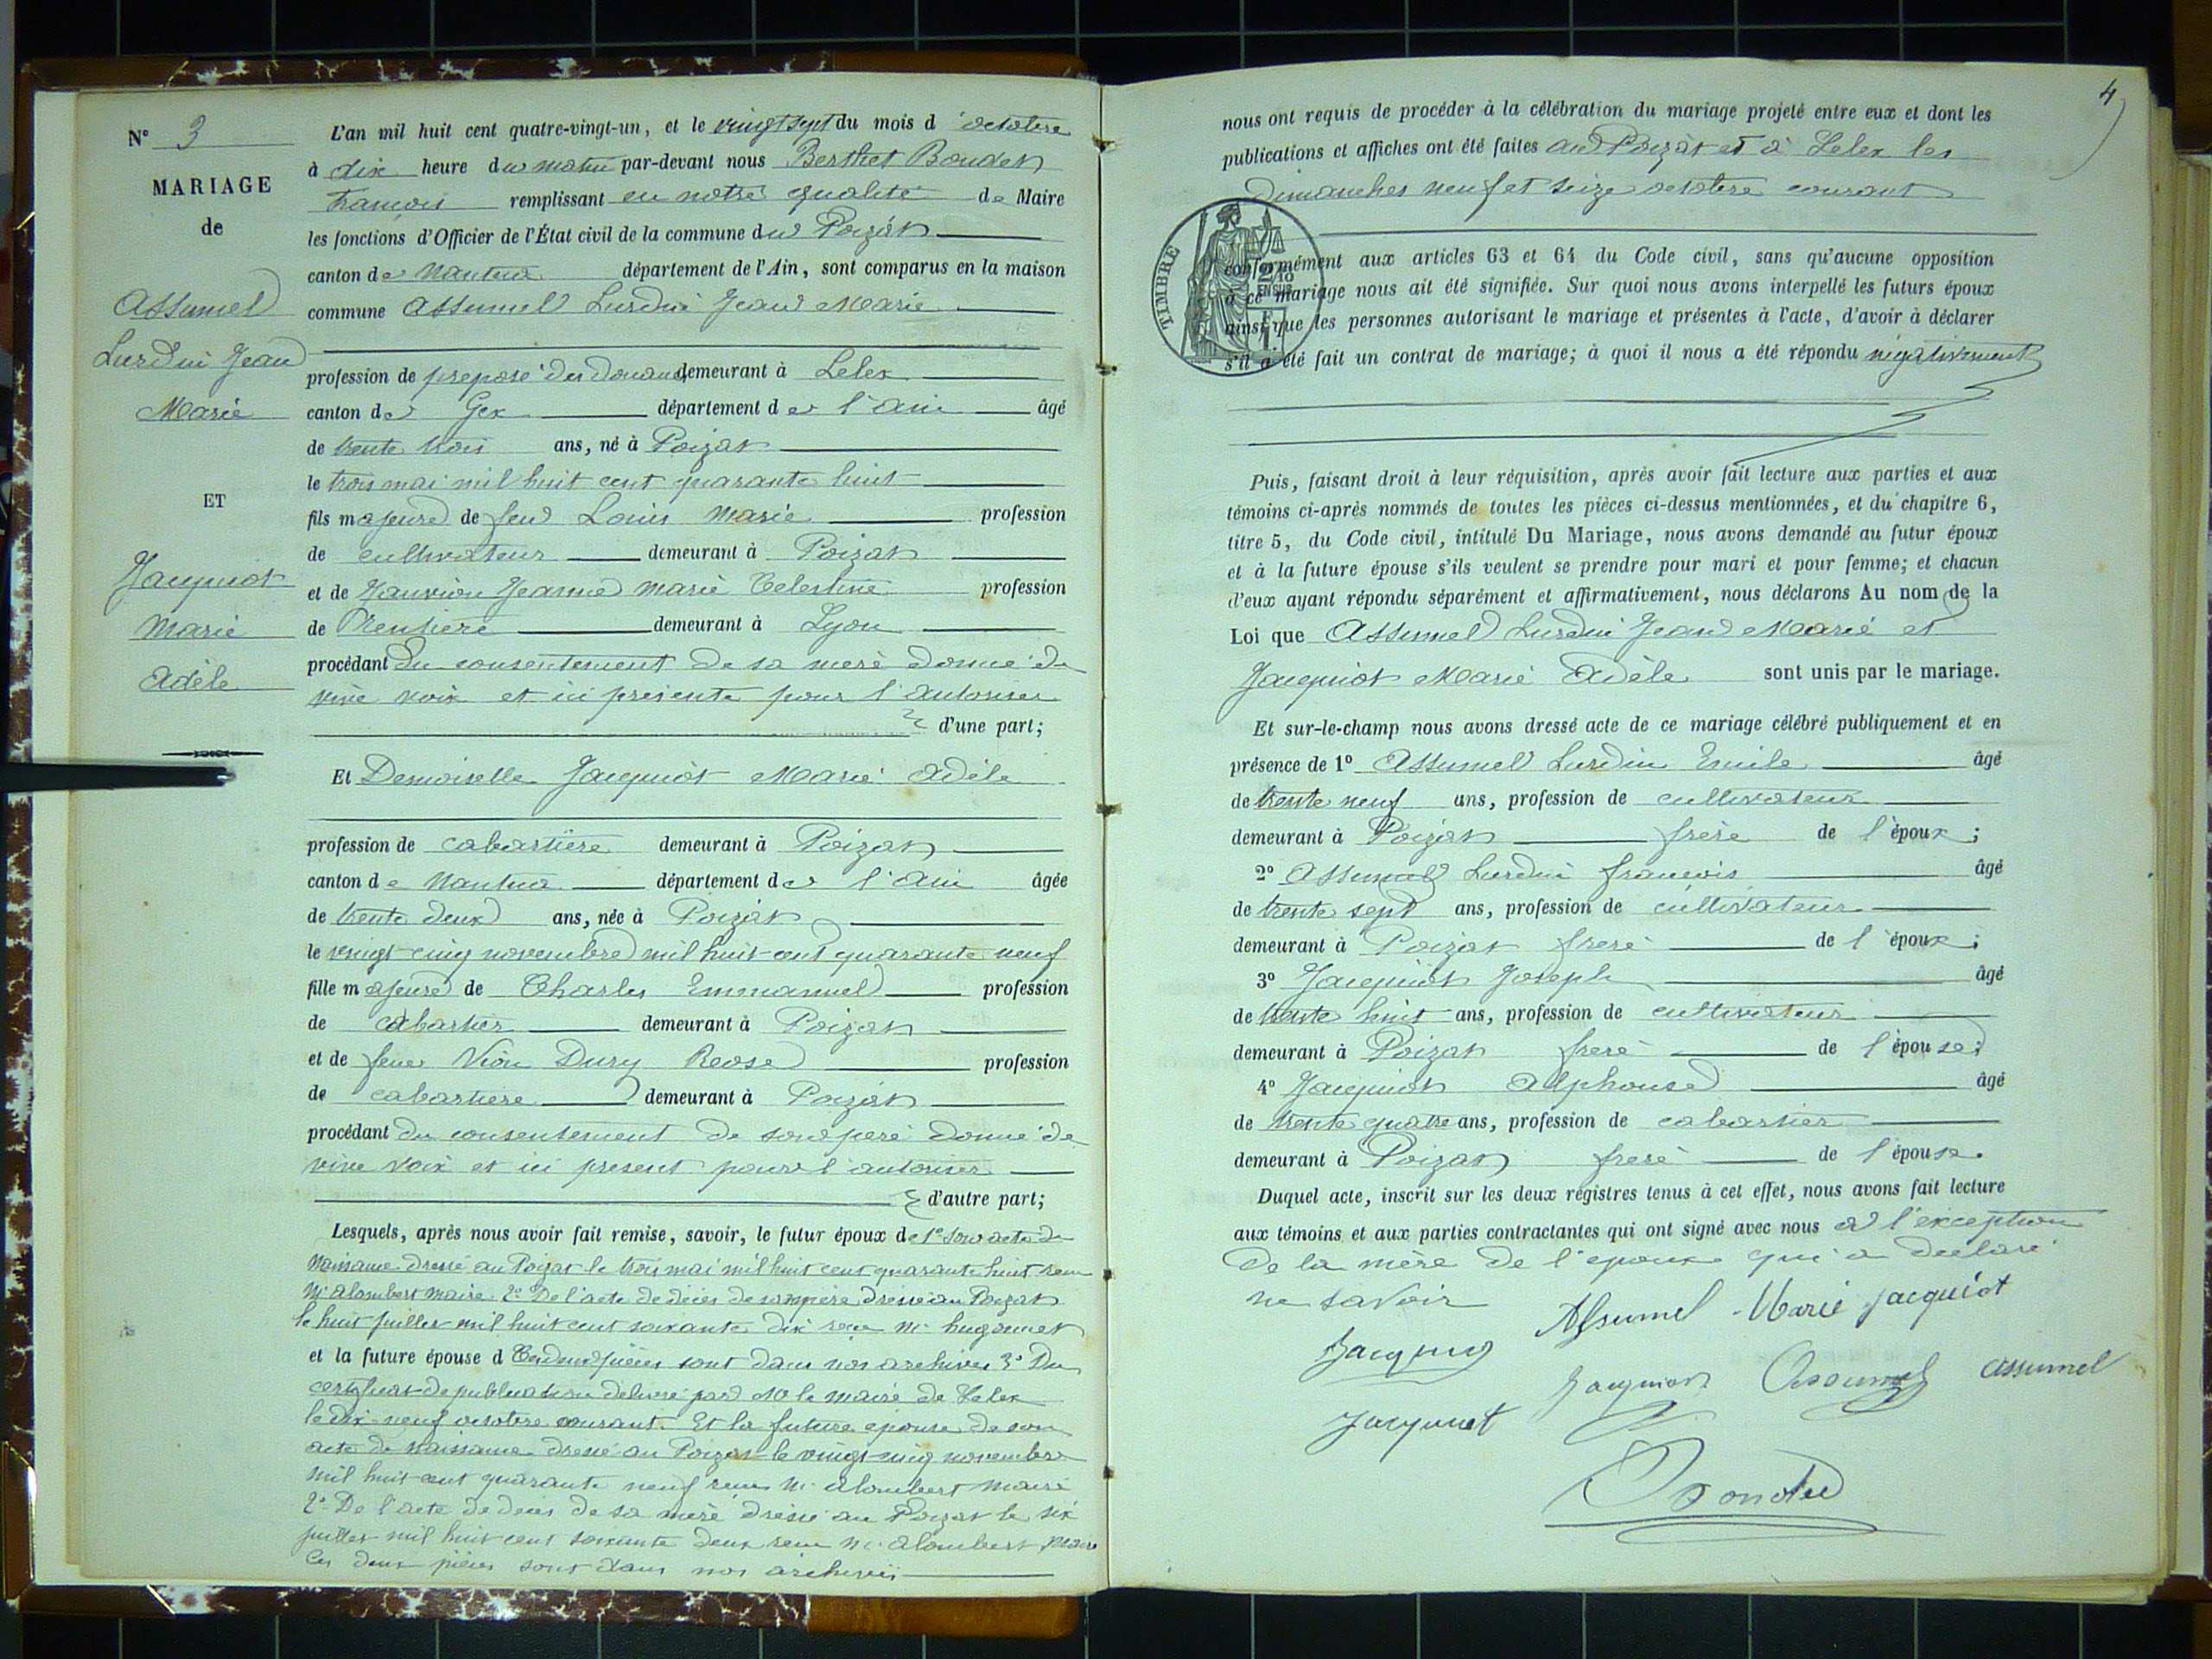 N° 3
MARIAGE
de
Assumel
Lurdin Jean
Marie
ET
Jacquiot
Marie
Adèle
L'an mil huit cent quatre-vingt-un, et le vingt sept du mois d'octobre
à dix heure du matin par-devant nous Berthet Bondet
francois remplissant en notre qualité de Maire
les fonctions d'Officier de l'État civil de la commune du Poizat
canton de Nantua département de l'Ain, sont comparus en la maison
commune Assumel Lurdin Jean Marie
profession de preposé des douanes demeurant à Lelex
canton de Gex département de l'Ain âgé
de trente trois ans, né à Poizat
le trois mai mil huit cent quarante huit
fils majeure de feu Louis Marie profession
de cultivateur demeurant à Poizat
et de Jeanne Marie Celestine profession
de Rentiere demeurant à Lyon
procédant Du consentement de sa mere donné de
vive voix et ici presente pour l'autoriser
d'une part;
Et Demoiselle Jacquiot Marie Adèle
profession de cabartière demeurant à Poizat
canton de Nantua département de l'Ain âgée
de trente deux ans, née à Poizat
le vingt-cinq novembre mil huit-cent quarante neuf
fille majeure de Charles Emmanuel profession
de cabartier demeurant à Poizat
et de feue Vion Dury Reose profession
de cabartiere demeurant à Poizat
procédant du consentement de son pere donné de
vive voix et ici present pour l'autoriser
d'autre part;
Lesquels, après nous avoir fait remise, savoir, le futur époux de 1° son acte de
naissance dressé au Poizat le trois mai mil huit cent quarante huit recu
Mr alombert maire 2° De l'acte de décès de son père dressé au Poizat
le huit juillet mil huit cent soixante dix recu Mr hugonnet
et la future épouse d Ces deux pièces sont dans nos archives 3° Du
certificat de publication delivré par M le maire de Lelex
le dix-neuf octobre courant. Et la future epouse de son
acte de naissance dressé au Poizat le vingt-cinq novembre
mil huit cent quarante neuf recu Mr alombert maire
2° De l'acte de deces de sa mere dressé au Poizat le six
juillet mil huit cent soixante deux recu Mr alombert maire
Ces deux pièces sont dans nos archives
4
nous ont requis de procéder à la célébration du mariage projeté entre eux et dont les
publications et affiches ont été faites au Poizat et à Lelex les
Dimanches neuf et seize octobre courant
TIMBRE
conformément aux articles 63 et 64 du Code civil, sans qu'aucune opposition
à ce mariage nous ait été signifiée. Sur quoi nous avons interpellé les futurs époux
ainsi que les personnes autorisant le mariage et présentes à l'acte, d'avoir à déclarer
s'il a été fait un contrat de mariage; à quoi il nous a été répondu négativement
Puis, faisant droit à leur réquisition, après avoir fait lecture aux parties et aux
témoins ci-après nommés de toutes les pièces ci-dessus mentionnées, et du chapitre 6,
titre 5, du Code civil, intitulé Du Mariage, nous avons demandé au futur époux
et à la future épouse s'ils veulent se prendre pour mari et pour femme; et chacun
d'eux ayant répondu séparément et affirmativement, nous déclarons Au nom de la
Loi que Assumel Lurdin Jean Marie et
Jacquiot Marie Adèle sont unis par le mariage.
Et sur-le-champ nous avons dressé acte de ce mariage célébré publiquement et en
présence de 1° Assumel Lurdin Emile âgé
de trente neuf ans, profession de cultivateur
demeurant à Poizat frère de l'époux;
2° Assumel Lurdin francois âgé
de trente sept ans, profession de cultivateur
demeurant à Poizat frere de l'époux;
3° Jacquiot Joseph âgé
de trente huit ans, profession de cultivateur
demeurant à Poizat frere de l'épouse;
4° Jacquiot Alphonse âgé
de trente quatre ans, profession de cabartier
demeurant à Poizat frere de l'épouse.
Duquel acte, inscrit sur les deux registres tenus à cet effet, nous avons fait lecture
aux témoins et aux parties contractantes qui ont signé avec nous a l'exception
de la mère de l'epoux qui a declaré
ne savoir
Assumel Marie Jacquiot
Jacquiot Assumel assumel
Bondet